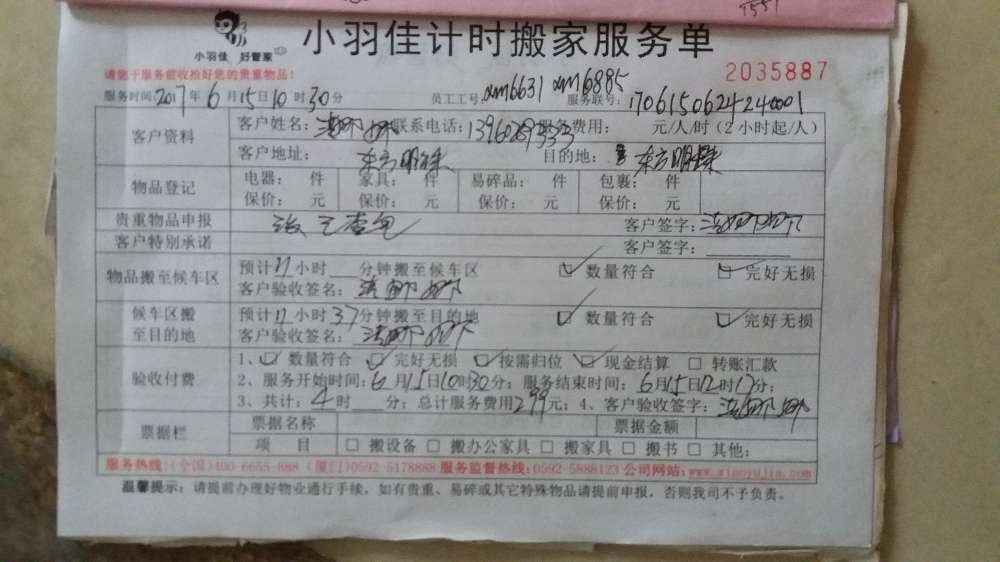 1551
小羽佳 好管家
小羽佳计时搬家服务单
请您于服务前收拾好您的贵重物品！
2035887
服务时间：2017年6月15日10时30分 员工工号：xm6631 xm6885 服务联号：1706150624240001
客户资料
客户姓名： 联系电话： 服务费用： 元/人/时（2小时起/人）
客户地址： 东方明珠 目的地： 东方明珠
物品登记
电器： 件 家具： 件 易碎品： 件 包裹： 件
保价： 元 保价： 元 保价： 元 保价： 元
贵重物品申报 客户签字：
客户特别承诺 客户签字：
物品搬至候车区
预计11小时___分钟搬至候车区 数量符合 完好无损
客户验收签名：
候车区搬至目的地
预计11小时37分钟搬至目的地 数量符合 完好无损
客户验收签名：
验收付费
1、 数量符合 完好无损 按需归位 现金结算 转账汇款
2、服务开始时间：6月15日10时30分；服务结束时间：6月15日12时17分；
3、共计：4时___分；总计服务费用299元；4、客户验收签字：
票据栏
票据名称 票据金额
项 目 搬设备 搬办公家具 搬家具 搬书 其他：
服务热线：(全国)400-6655-888 (厦门)0592-5178888 服务监督热线：0592-5888123 公司网站：www.xiaoyujia.com
温馨提示：请提前办理好物业通行手续，如有贵重、易碎或其它特殊物品请提前申报，否则我司不予负责。